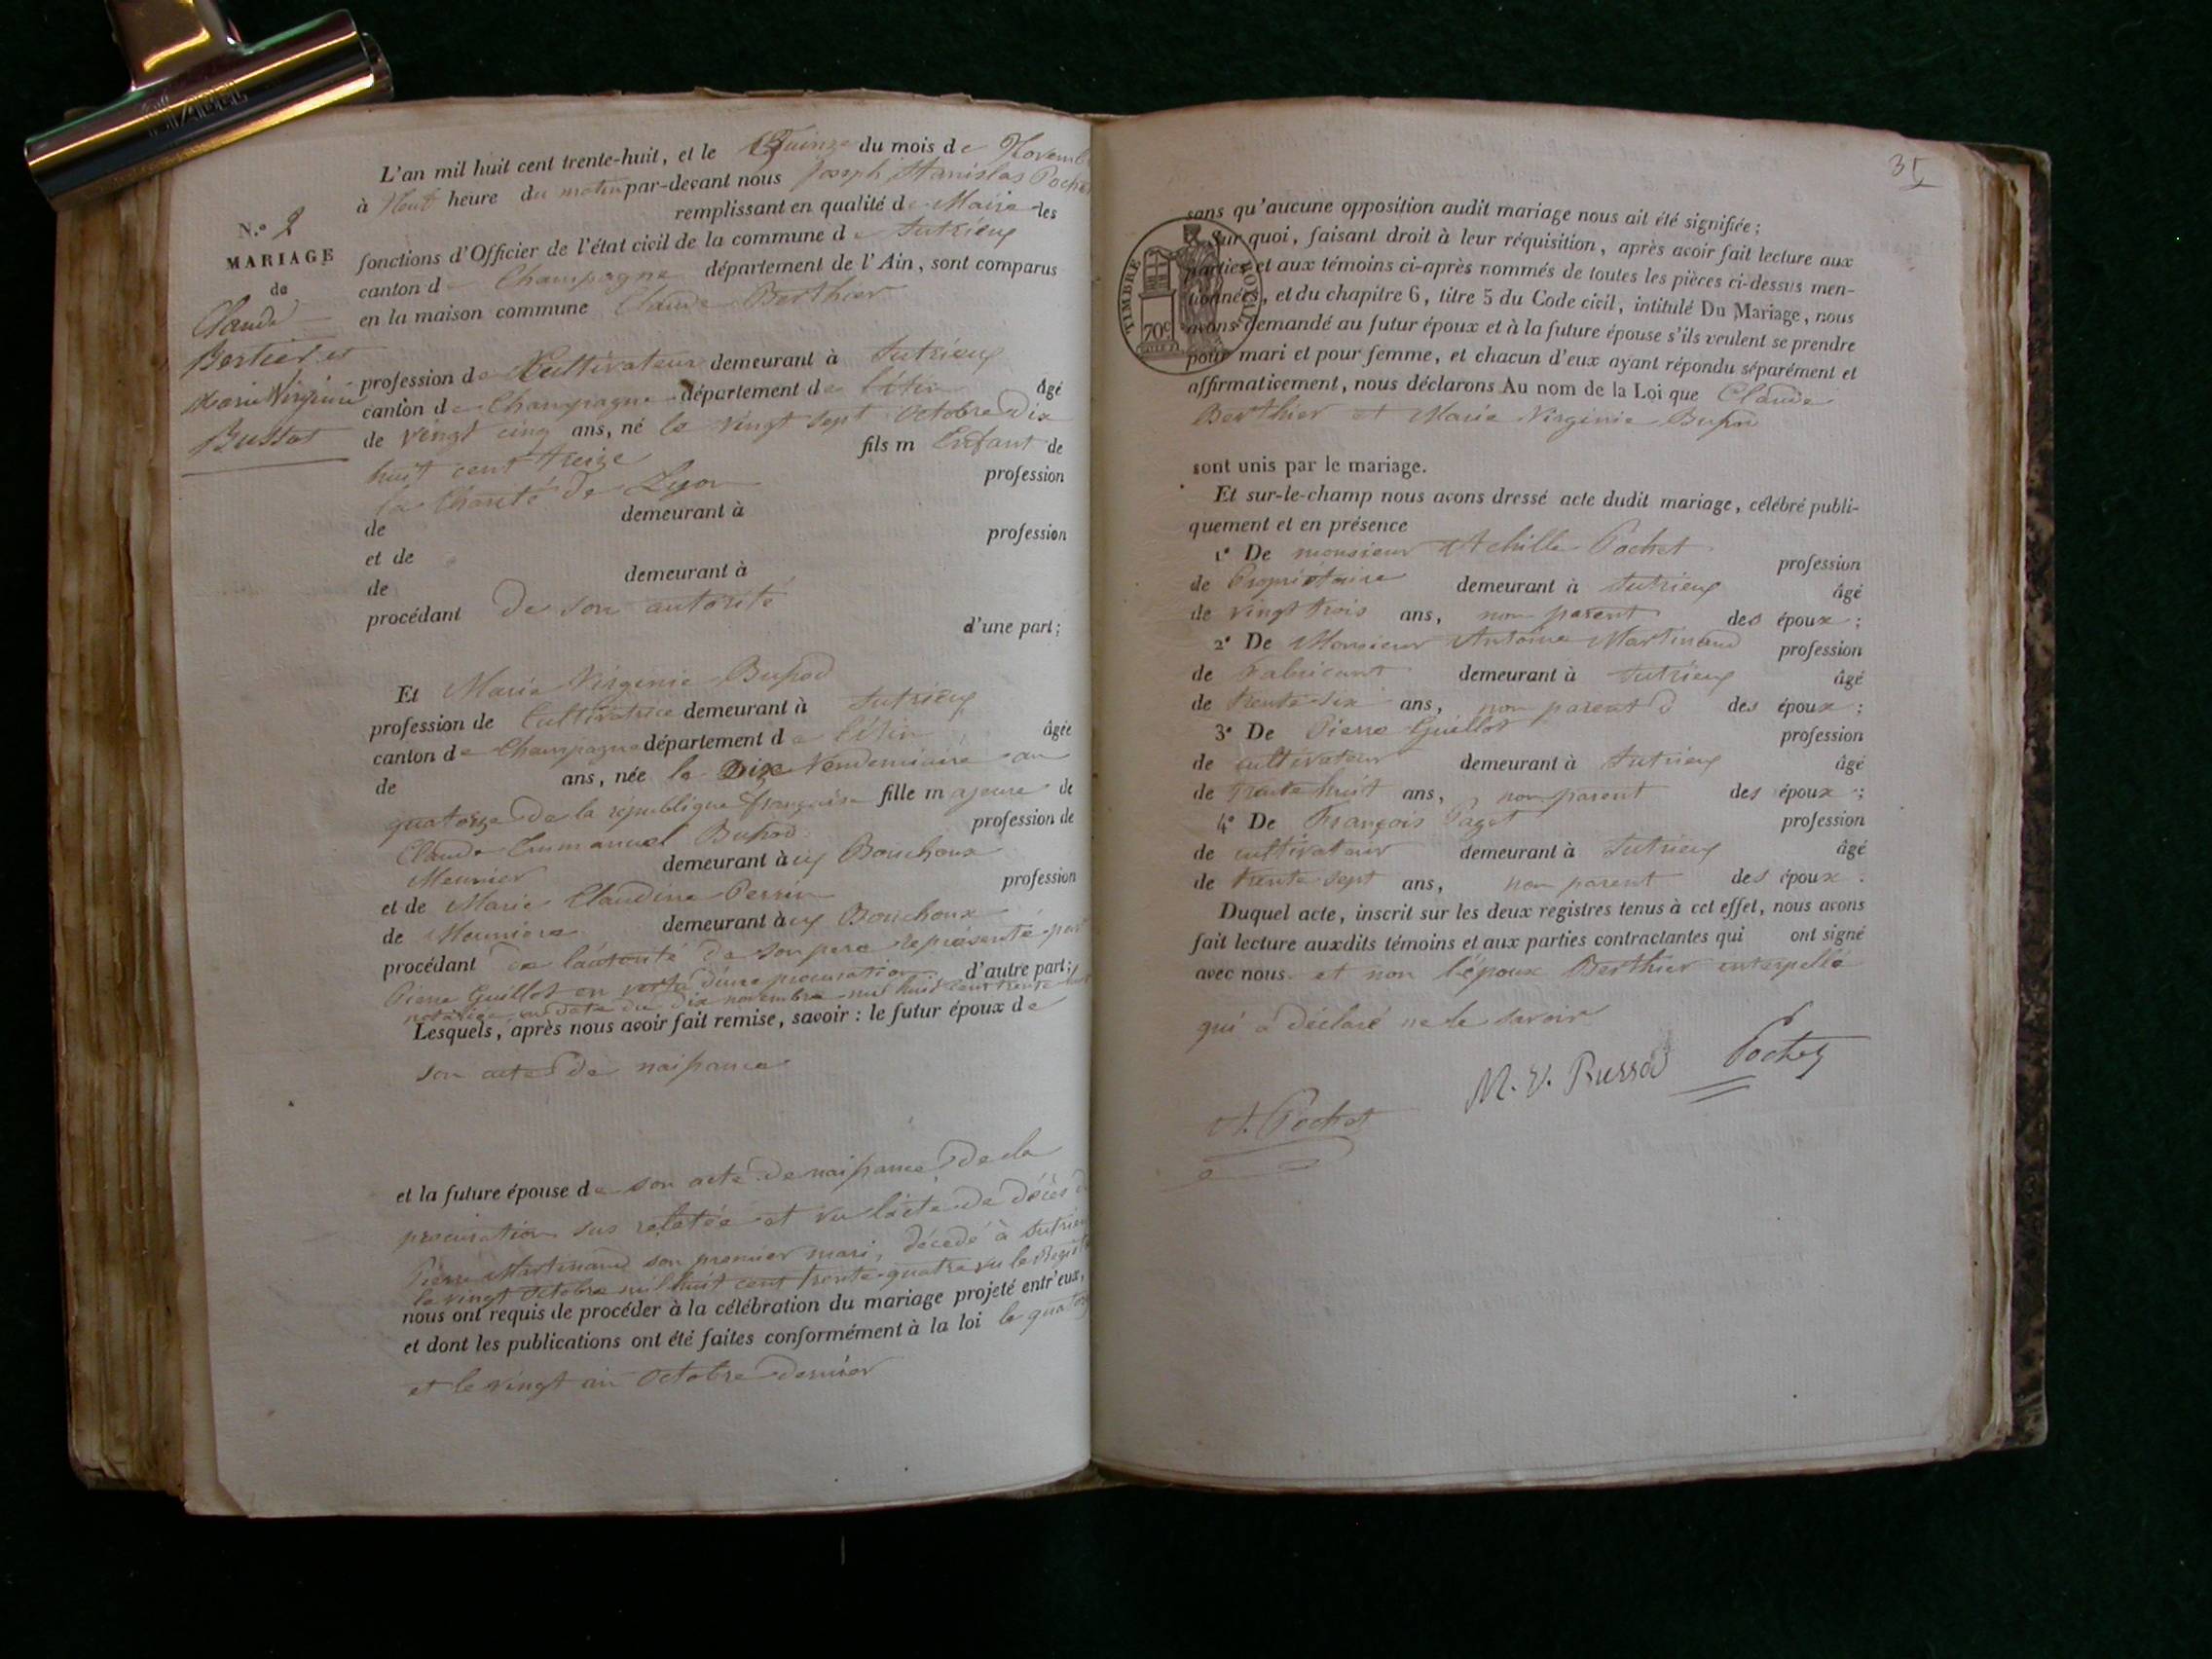 N.° 2
MARIAGE
de
Claude
Bertier et
Marie Virginie
Bussod
L'an mil huit cent trente-huit, et le Quinze du mois de Novemb
à Neuf heure du matin par-devant nous Joseph Stanislas Poche
remplissant en qualité de Maire les
fonctions d'Officier de l'état civil de la commune de Sutrieux
canton de Champagne département de l'Ain, sont comparus
en la maison commune Claude Berthier
profession de Cultivateur demeurant à Sutrieux
canton de Champagne département de l'Ain âgé
de vingt cinq ans, né le vingt sept octobre dix
huit cent treize fils m Enfant de
la Charité de Lyon profession
de demeurant à
et de profession
de demeurant à
procédant de son autorité
d'une part;
Et Marie Virginie Bussod
profession de Cultivatrice demeurant à Sutrieux
canton de Champagne département de l'Ain âgée
de ans, née le Dix Vendemiaire an
quatorze de la république française fille majeure de
Claude Emmanuel Bussod profession de
Meunier demeurant à aux Bouchoux
et de Marie Claudine Perrin profession
de Meuniere demeurant à aux Bouchoux
procédant de l'autorité de son pere représenté par
Pierre Guillot en vertu d'une procuration d'autre part;
notariée en date du dix novembre mil huit cent trente huit
Lesquels, après nous avoir fait remise, savoir: le futur époux de
son acte de naissance
et la future épouse de son acte de naissance de la
procuration sus relatée et vu l'acte de décès d
Pierre Martinand son premier mari, décédé à Sutrieu
le vingt octobre mil huit cent trente quatre vu le Registr
nous ont requis de procéder à la célébration du mariage projeté entr'eux,
et dont les publications ont été faites conformément à la loi le quatorz
et le vingt un octobre dernier
35
TIMBRE ROYAL
70c
sans qu'aucune opposition audit mariage nous ait été signifiée;
Sur quoi, faisant droit à leur réquisition, après avoir fait lecture aux
parties et aux témoins ci-après nommés de toutes les pièces ci-dessus men-
tionnées, et du chapitre 6, titre 5 du Code civil, intitulé Du Mariage, nous
avons demandé au futur époux et à la future épouse s'ils veulent se prendre
pour mari et pour femme, et chacun d'eux ayant répondu séparément et
affirmativement, nous déclarons Au nom de la Loi que Claude
Berthier et Marie Virginie Bussod
sont unis par le mariage.
Et sur-le-champ nous avons dressé acte dudit mariage, célébré publi-
quement et en présence
1° De monsieur Achille Pochet profession
de Propriétaire demeurant à Sutrieux âgé
de vingt trois ans, non parent des époux;
2° De Monsieur Antoine Martinand profession
de Fabricant demeurant à Sutrieux âgé
de trente six ans, non parent des époux;
3° De Pierre Guillot profession
de cultivateur demeurant à Sutrieux âgé
de trente huit ans, non parent des époux;
4° De François Paget profession
de cultivateur demeurant à Sutrieux âgé
de trente sept ans, non parent des époux.
Duquel acte, inscrit sur les deux registres tenus à cet effet, nous avons
fait lecture auxdits témoins et aux parties contractantes qui ont signé
avec nous. et non l'époux Berthier interpellé
qui a déclaré ne le savoir
M. V. Bussod Pochet
A. Pochet